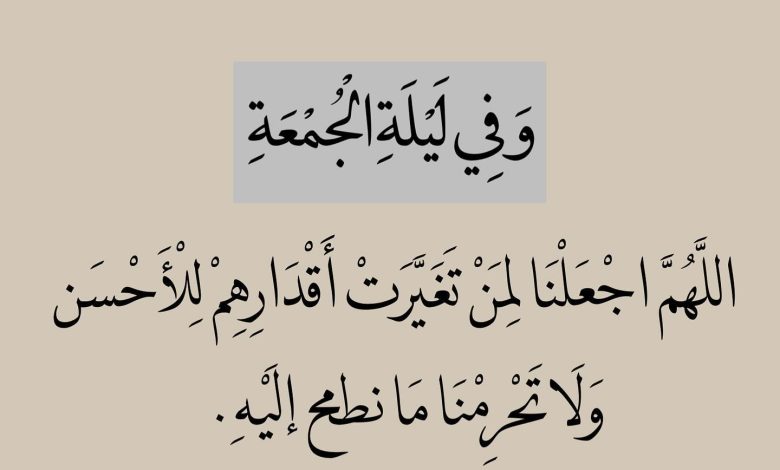 وَفِي لَيْلَةِ الْجُمْعَةِ
اللَّهُمَّ اجْعَلْنَا لِمَنْ تَغَيَّرَتْ أَقْدَارِهِمْ لِلْأَحْسَن
وَلَا تَحْرِمْنَا مَا نطمح إلَيْهِ .